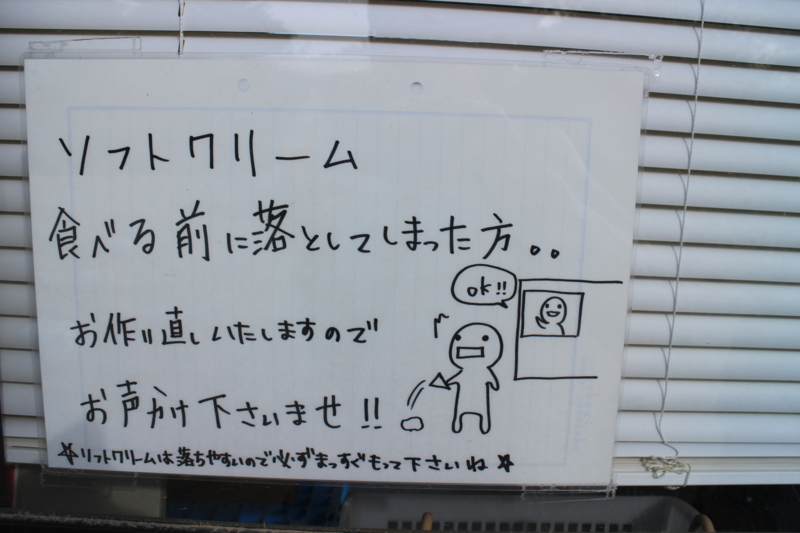 ソフトクリーム
食べる前に落としてしまった方。。
お作り直しいたしますので
お声かけ下さいませ!!
☆ソフトクリームは落ちやすいので必ずまっすぐもって下さいね☆
ok!!